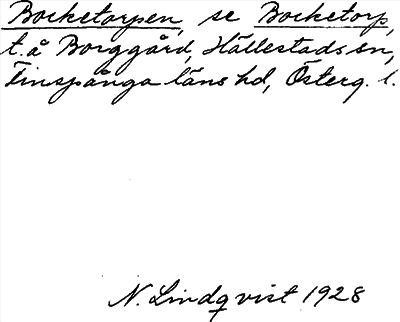 Bocketorpen, se Bocketorp,
t. å Borggård, Hällestads sn,
Finspånga läns hd, Österg. l.
N. Lindqvist 1928